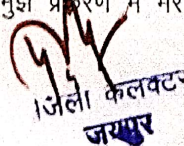 मुझे प्रकरण में
जिला कलक्टर
जयपुर